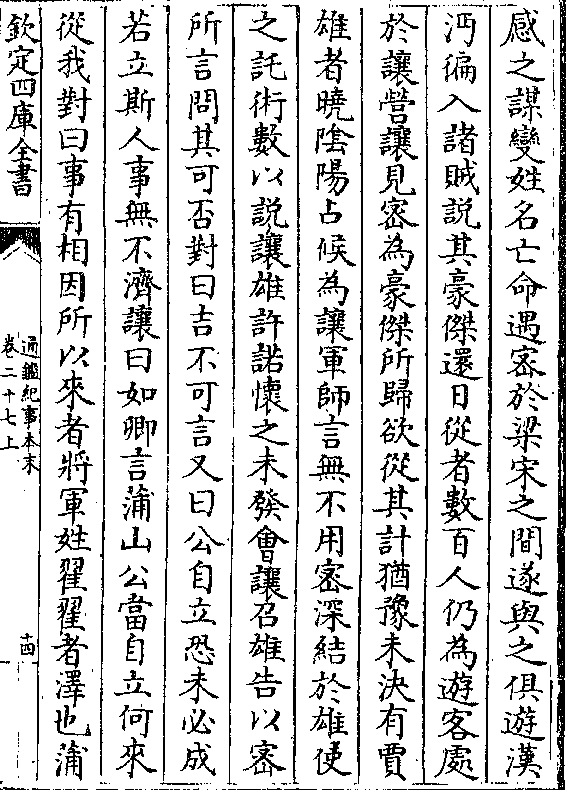 感之謀變姓名亡命遇密於梁宋之間遂與之俱遊漢
沔徧入諸賊説其豪傑還日從者數百人仍為遊客處
於讓營讓見密為豪傑所歸欲從其計猶豫未決有賈
雄者曉隂陽占候為讓軍師言無不用密深結於雄使
之託術數以説讓雄許諾懷之未發會讓召雄告以密
所言問其可否對曰吉不可言又曰公自立恐未必成
若立斯人事無不濟讓曰如卿言蒲山公當自立何來
從我對曰事有相因所以來者將軍姓翟翟者澤也蒲
欽定四庫全書
通鑑紀事本末
卷二十七上
十四